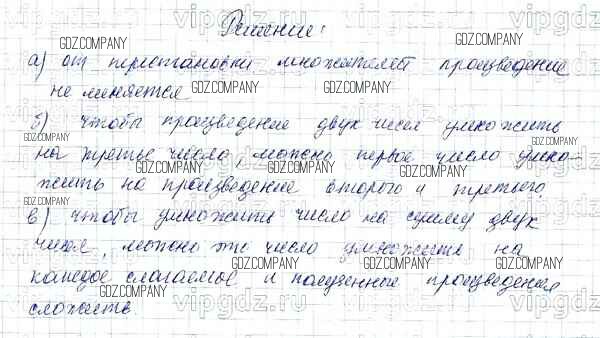 Решение:
а) от перестановки множителей произведение
не меняется
б) чтобы произведение двух чисел умножить
на третье число, можно первое число умно-
жить на произведение второго и третьего.
в) чтобы умножить число на сумму двух
чисел, можно это число умножить на
каждое слагаемое и полученные произведения
сложить.
vipgdz.ru
GDZ.COMPANY